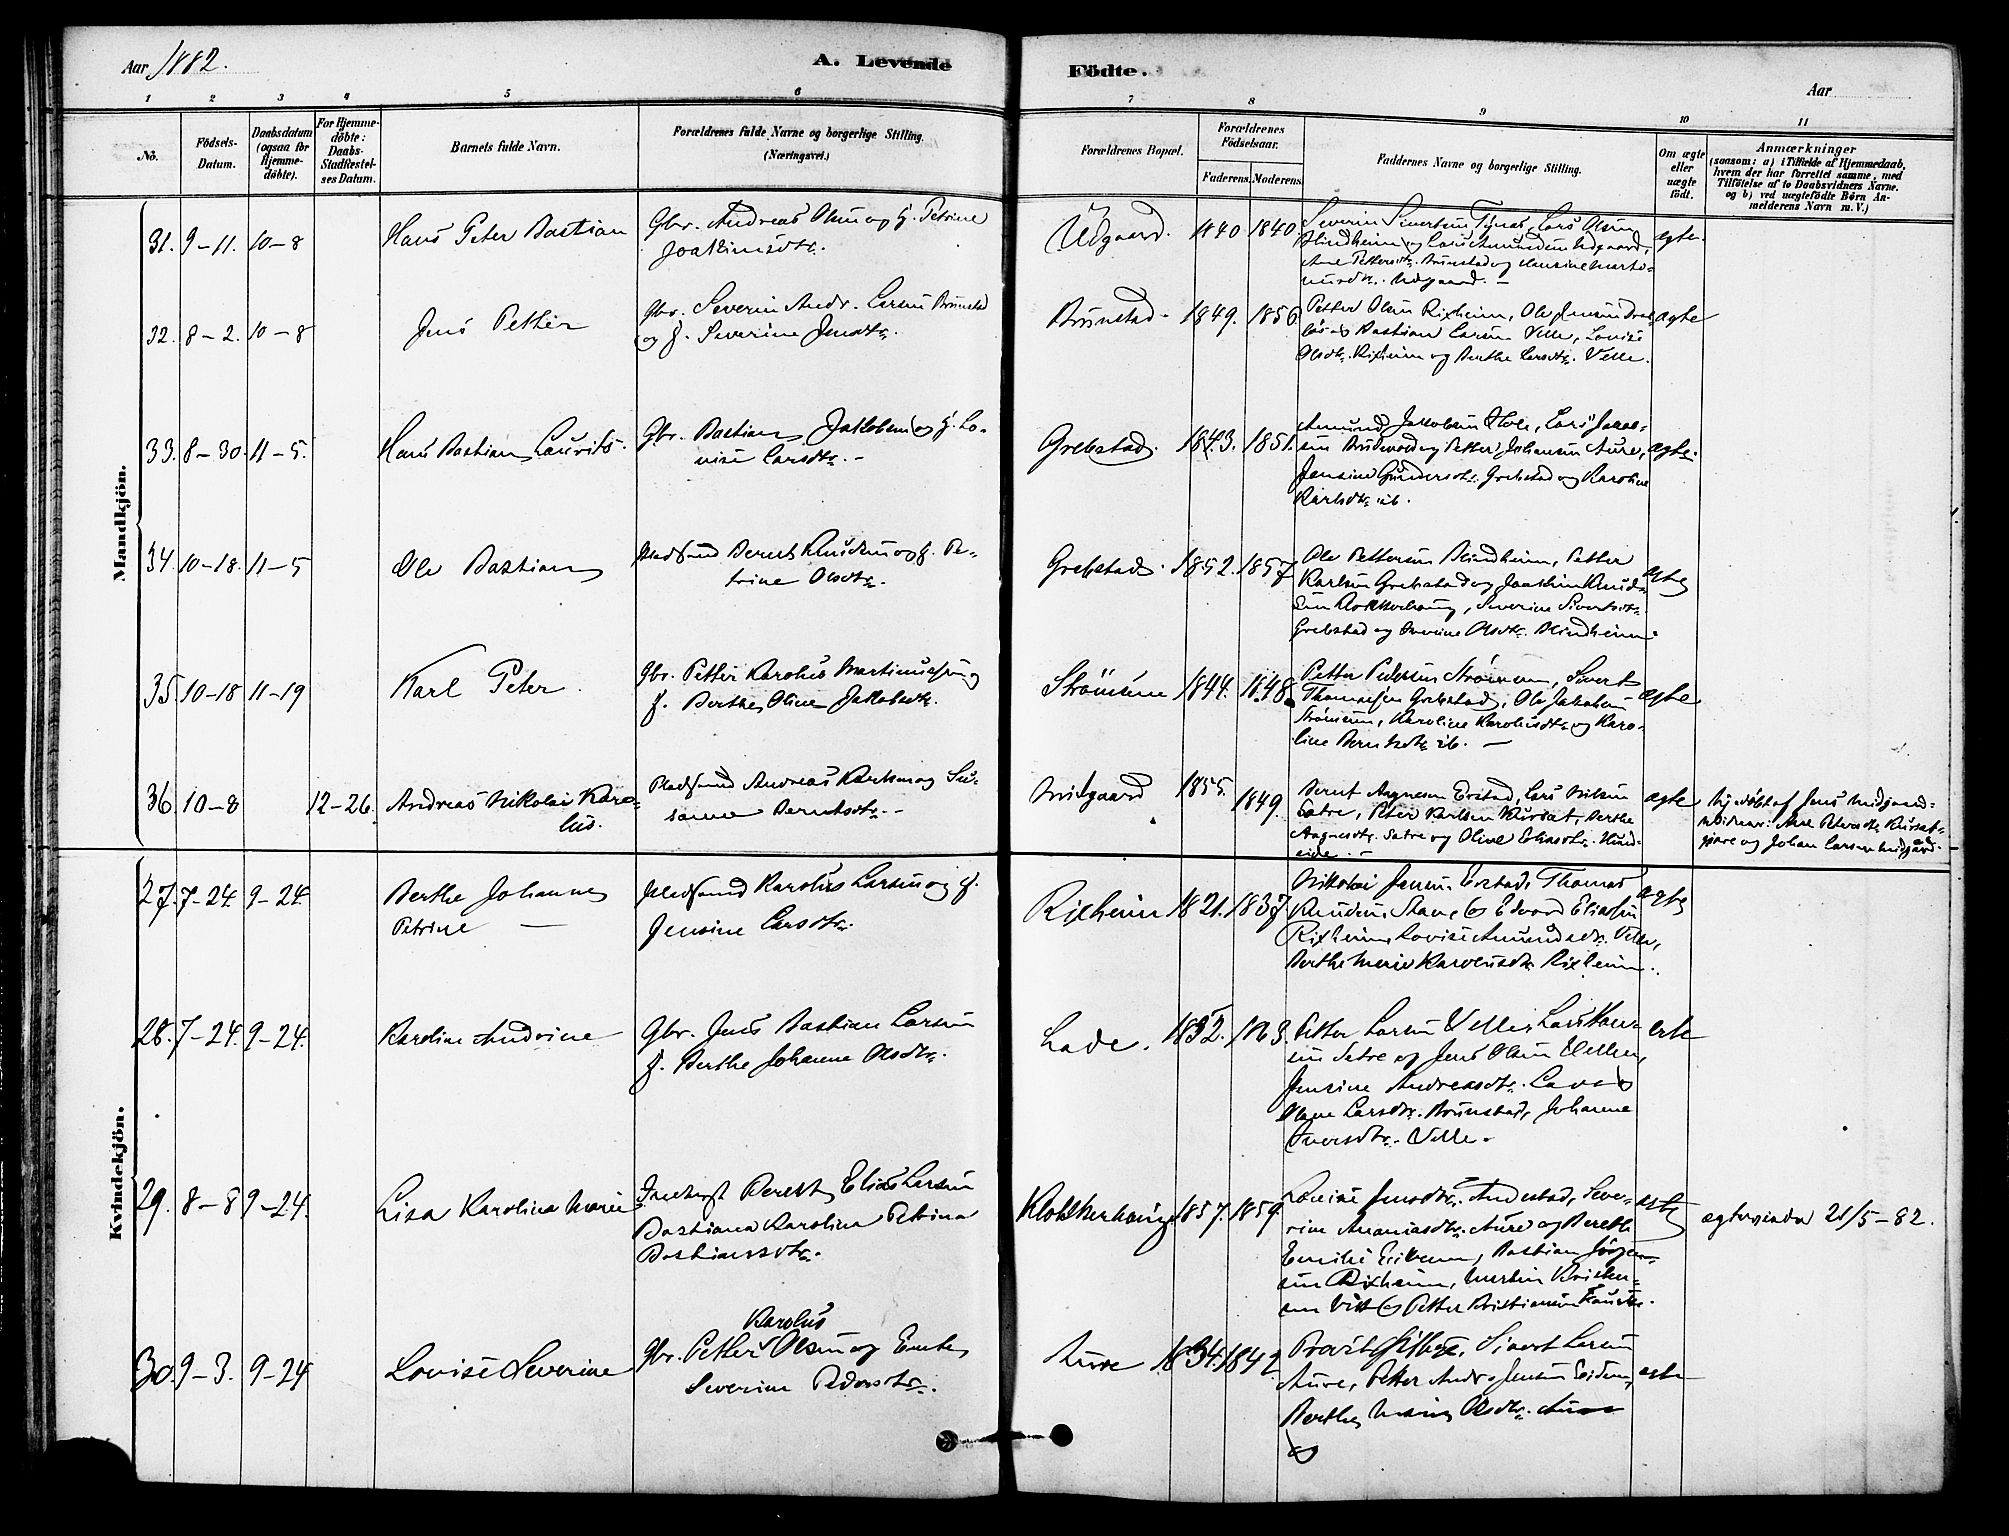 Aar 1882.
A. Levende
Födte.
Aar
1 2 3 4 5 6 7 8 9 10 11
No.
Födsels-
Datum.
Daabsdatum
(ogsaa for
Hjemme-
döbte).
For Hjemme-
döbte:
Daabs-
Stadfæstel-
ses Datum.
Barnets fulde Navn.
Forældrenes fulde Navne og borgerlige Stilling
(Næringsvei.)
Forældrenes Bopæl.
Forældrenes
Födselsaar.
Faderens. Moderens.
Faddernes Navne og borgerlige Stilling.
Om ægte
eller
uægte
födt.
Anmærkninger
(saasom: a) i Tilfælde af Hjemmedaab,
hvem der har forrettet samme, med
Tilföielse af to Daabsvidners Navne,
og b) ved uægtefödte Börn An-
melderens Navn m. V.)
Mandkjön.
31. 9-11. 10-8
Hans Peter Bastian
Gbr. Andreas Olsen og H. Petrine
Joakimsdtr.
Udgaard. 1840 1840.
Severin Sivertsen Tynes, Lars Olsen
Blindheim og Lars Amundsen Udgaard,
Ane Pettersdtr. Brunstad og
Udgaard. -
ægte.
32. 8-2. 10-8
Jens Petter
Gbr. Severin Andr. Larsen Brunstad
og H. Severine Jensdtr.
Brunstad. 1849. 1856.
Petter Olsen Rixheim, Ole
Bastian Larsen Velle, Lovise
Olsdtr. Rixheim og Berthe Larsdtr. Velle.
ægte
33. 8-30. 11-5.
Hans Bastian Laurits.
Gbr. Bastian Jakobsen og H. Lo-
vise Larsdtr. -
Grebstad. 1843. 1851.
Amund Jakobsen Hole, Lars
og Petter Johansen Aure,
Jensine Gundersdtr. Grebstad og Karoline
Karlsdtr. ib.
ægte.
34. 10-18. 11-5
Ole Bastian
Pladsmand Bernt Knudsen og H. Pe-
trine Olsdtr.
Grebstad. 1852. 1857
Ole Pettersen Blindheim, Petter
Karlsen Grebstad og Joakim Knud-
sen Klokkerhaug, Severine Sivertsdtr.
Grebstad og Severine Olsdtr. Blindheim.
ægte
35. 10-18 11-19
Karl Peter.
Gbr. Petter Karolus Martinussen og
H. Berthe Oline Jakobsdtr.
Strømmen 1844. 1848
Petter Pedersen Strømmen, Sivert
Thomassen Grebstad, Ole Jakobsen
Strømmen, Karoline Karolusdtr. og Karo-
line Berntsdtr. ib. -
ægte
36. 10-8 12-26.
Andreas Nikolai Karo-
lus.
Pladsmand Andreas Karlsen og Su-
sanne Berntsdtr. -
Midgaard 1855. 1849.
Bernt Aagesen Erstad, Lars Nilsen
Sætre, Peter Karlsen Kursæt, Berthe
Aagesdtr. Sætre og Oline Eliasdtr. Hund-
eide. -
ægte
Hjdøbt af Jens Midgaard.
Vidner: Ane Petersdtr. Kursæt-
gjære og Johan Larsen Midgård.
Kvindekjön.
27. 7-24. 9-24.
Berthe Johanne
Petrine -
Pladsmand Karolus Larsen og H.
Jensine Larsdtr.
Rixheim 1821. 1837
Nikolai Jensen Erstad, Thomas
Knudsen Stave og Edvard Eliassen
Rixheim, Lovise Amundsdtr. Velle,
Berthe Marie Karolusdtr. Rixheim.
ægte
28. 7-24. 9-24.
Karoline Andrine
Gbr. Jens Bastian Larsen
H. Berthe Johanne Olsdtr.
Lade. 1852. 1863.
Petter Larsen Velle, Lars Han-
sen Sætre og Jens Olsen Velle,
Jensine Andreasdtr. Lade,
Olave Larsdtr. Brunstad, Johanne
Iversdtr. Velle.
ægte
29. 8-8 9-24.
Lisa Karolina Marie
Berett Elias Larsen
Bastiana Karolina Petrina
Bastiansdtr.
Klokkerhaug 1857. 1859.
Lovise Jensdtr. Andestad, Seve-
rine Ananiasdtr. Aure og Bereth
Emilie Eriksen, Bastian Jørgen-
sen Rixheim, Martin
Vik og Petter Kristiansen
ægte
ægteviede 21/5-82.
30. 9-3. 9-24
Lovise Severine
Karolus
Gbr. Petter Olsen og
Severine Pedersdtr.
Aure 1834. 1842
Provst Gilbye, Sivert Larsen
Aure, Petter Andr. Jensen
Berthe Marie Olsdtr. Aure
og
ægte